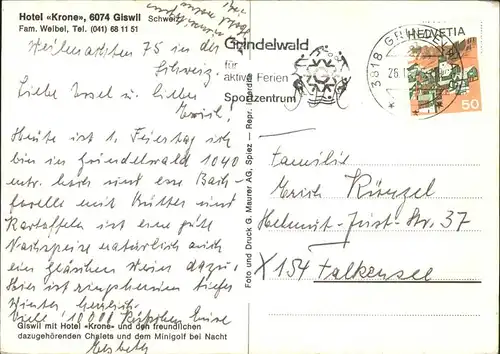 Hotel «Krone», 6074 Giswil Schweiz
Fam. Weibel, Tel. (041) 68 11 51
Weihnachten 75 in der
Schweiz.
Liebe Ursel u. Lieber
Erich!
Heute ist 1. Feiertag ich
bin in Grindelwald 1040
mtr. hoch und esse Bach-
forelle mit Butter und
Kartoffeln ist eine gute
Nachspeise natürlich auch
ein gläschen Wein dazu.
Hier ist ringsherum tiefer
Winter herrlich.
Viele 10 000 Grüße
Elsbeth
Giswil mit Hotel «Krone» und den freundlichen
dazugehörenden Chalets und dem Minigolf bei Nacht
Foto und Druck G. Maurer AG, Spiez – Repr. interdite
Grindelwald
für
aktive Ferien
Sportzentrum
3818 GRINDELWALD
HELVETIA
50
Familie
Erich Künzel
Helmut-Just-Str. 37
X 154 Falkensee